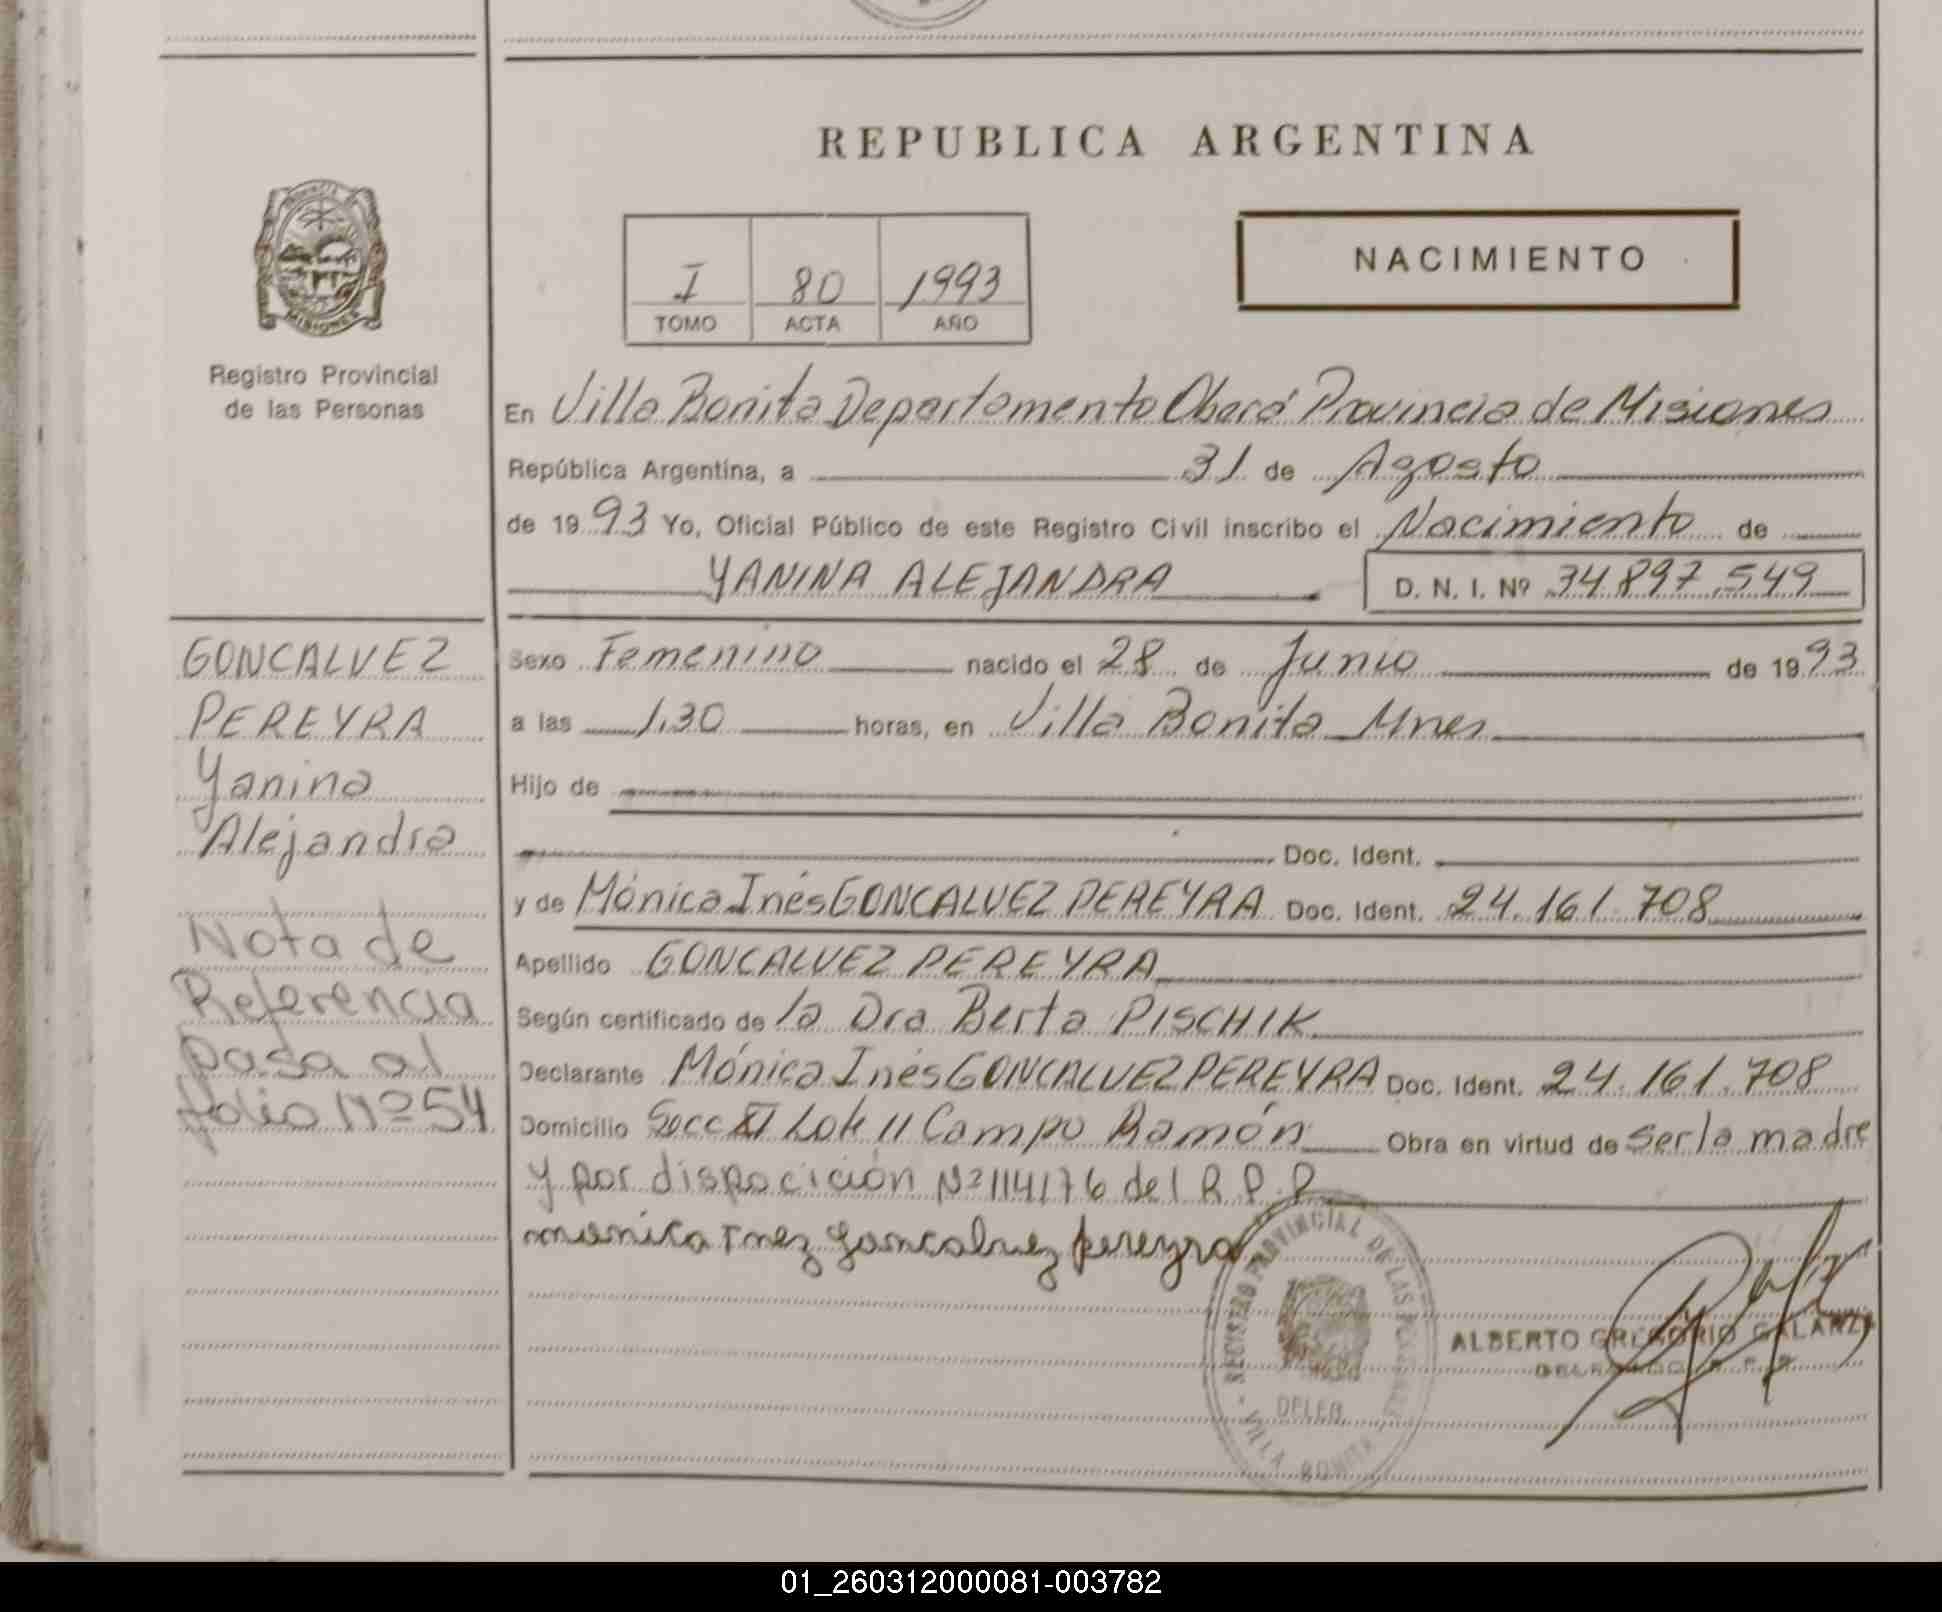 REPUBLICA ARGENTINA
NACIMIENTO
I 80 1993
TOMO ACTA AÑO
MISIONES
Registro Provincial
de las Personas
En Villa Bonita Departamento Oberá Provincia de Misiones
República Argentina, a 31 de Agosto
de 1993 Yo, Oficial Público de este Registro Civil inscribo el Nacimiento de
YANINA ALEJANDRA D. N. I. Nº 34.897.549
GONCALVEZ
PEREYRA
Yanina
Alejandra
Nota de
Referencia
pasa al
folio Nº 54
Sexo Femenino nacido el 28 de Junio de 1993
a las 1,30 horas, en Villa Bonita Mnes
Hijo de
Doc. Ident.
y de Mónica Inés GONCALVEZ PEREYRA Doc. Ident. 24.161.708
Apellido GONCALVEZ PEREYRA
Según certificado de la Dra Berta PISCHIK
Declarante Mónica Inés GONCALVEZ PEREYRA Doc. Ident. 24.161.708
Domicilio Secc XI Lote 11 Campo Ramón Obra en virtud de ser la madre
y por dispocición Nº 114176 del R.P.P
monica Inez goncalvez pereyra
REGISTRO PROVINCIAL DE LAS PERSONAS
DELEG.
VILLA BONITA
ALBERTO GREGORIO GALARZA
01_260312000081-003782